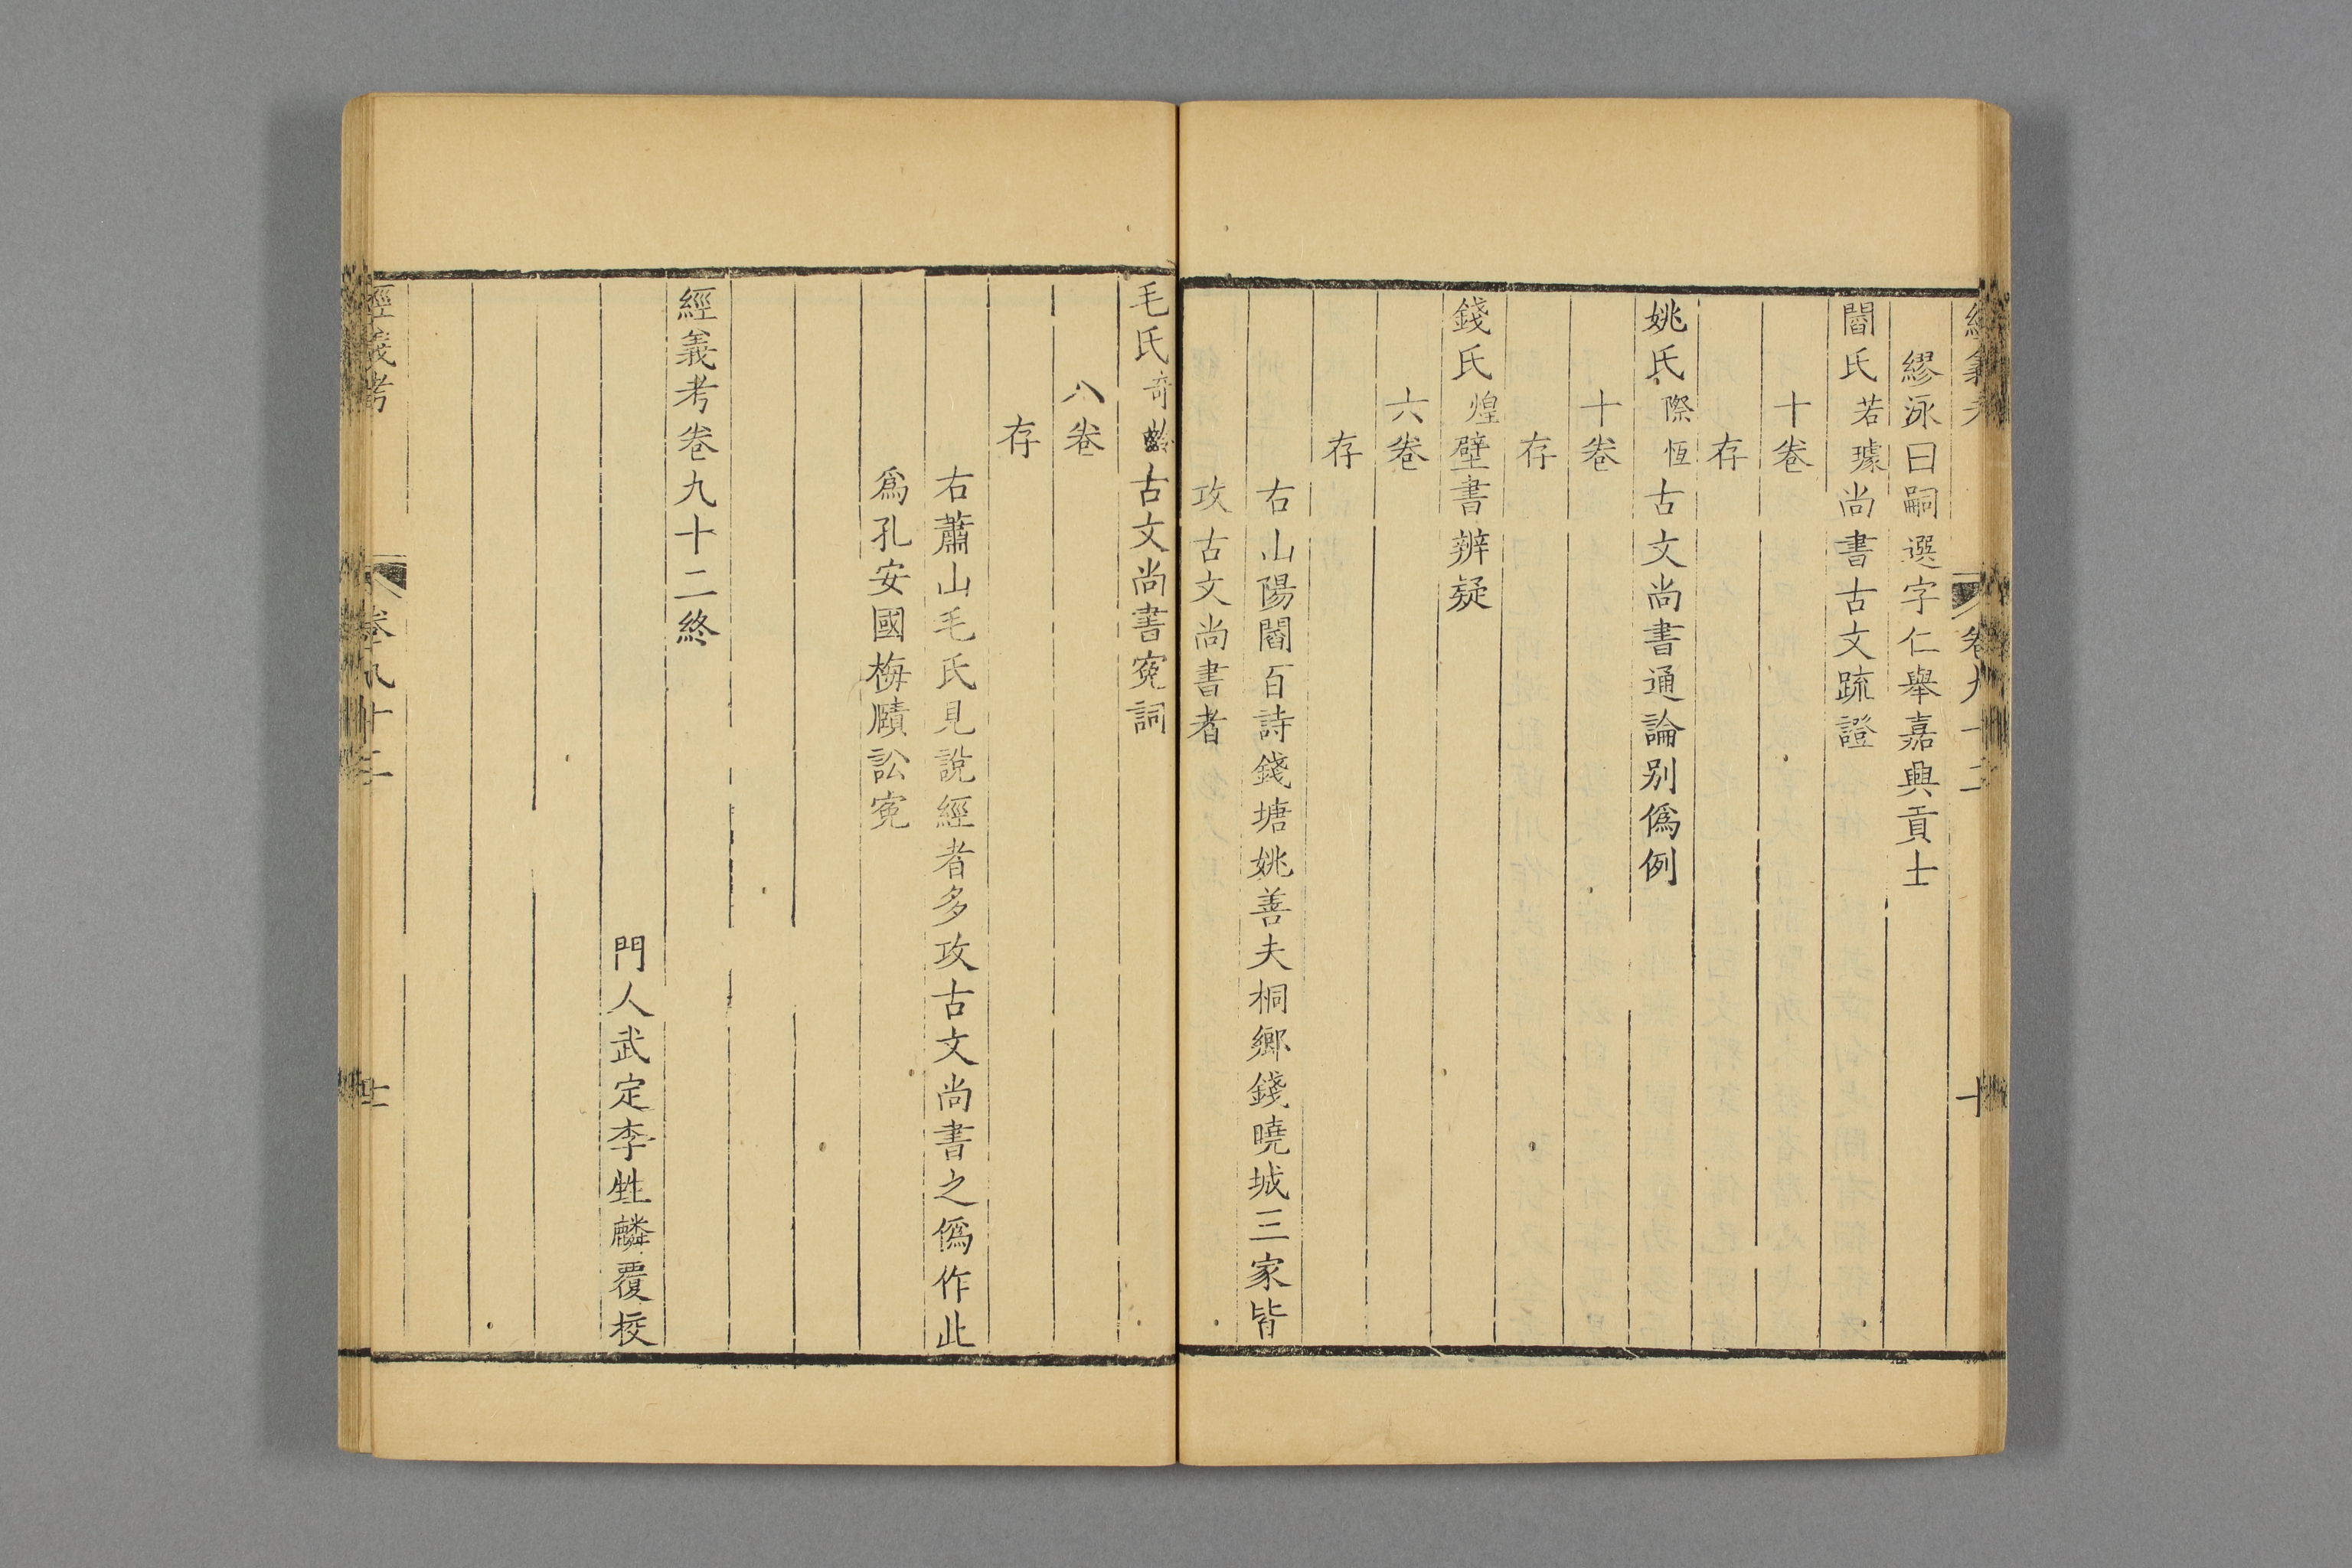 經義考 卷九十二 十
繆泳曰嗣選字仁舉嘉興貢士
閻氏若璩尚書古文疏證
十卷
存
姚氏際恆古文尚書通論別僞例
十卷
存
錢氏煌壁書辨疑
六卷
存
右山陽閻百詩錢塘姚善夫桐鄉錢曉城三家皆
攻古文尚書者
毛氏奇齡古文尚書寃詞
八卷
存
右蕭山毛氏見說經者多攻古文尚書之僞作此
爲孔安國梅賾訟寃
經義考卷九十二終
門人武定李甡麟覆挍
經義考 卷九十二 十一